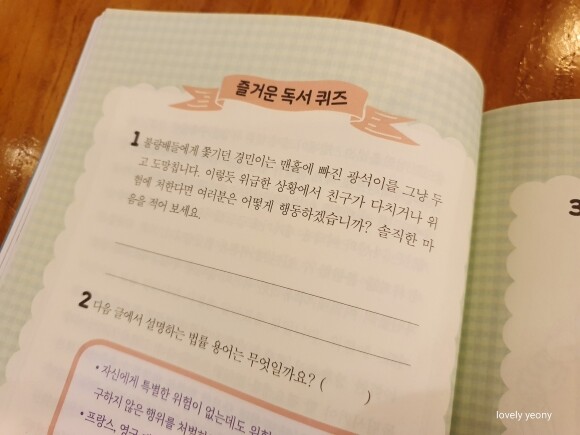 즐거운 독서 퀴즈
1 불량배들에게 쫓기던 경민이는 맨홀에 빠진 광석이를 그냥 두
고 도망칩니다. 이렇듯 위급한 상황에서 친구가 다치거나 위
험에 처한다면 여러분은 어떻게 행동하겠습니까? 솔직한 마
음을 적어 보세요.
2 다음 글에서 설명하는 법률 용어는 무엇일까요? ( )
• 자신에게 특별한 위험이 없는데도 위험
구하지 않은 행위를 처벌하
• 프랑스, 영국
3
lovely yeony